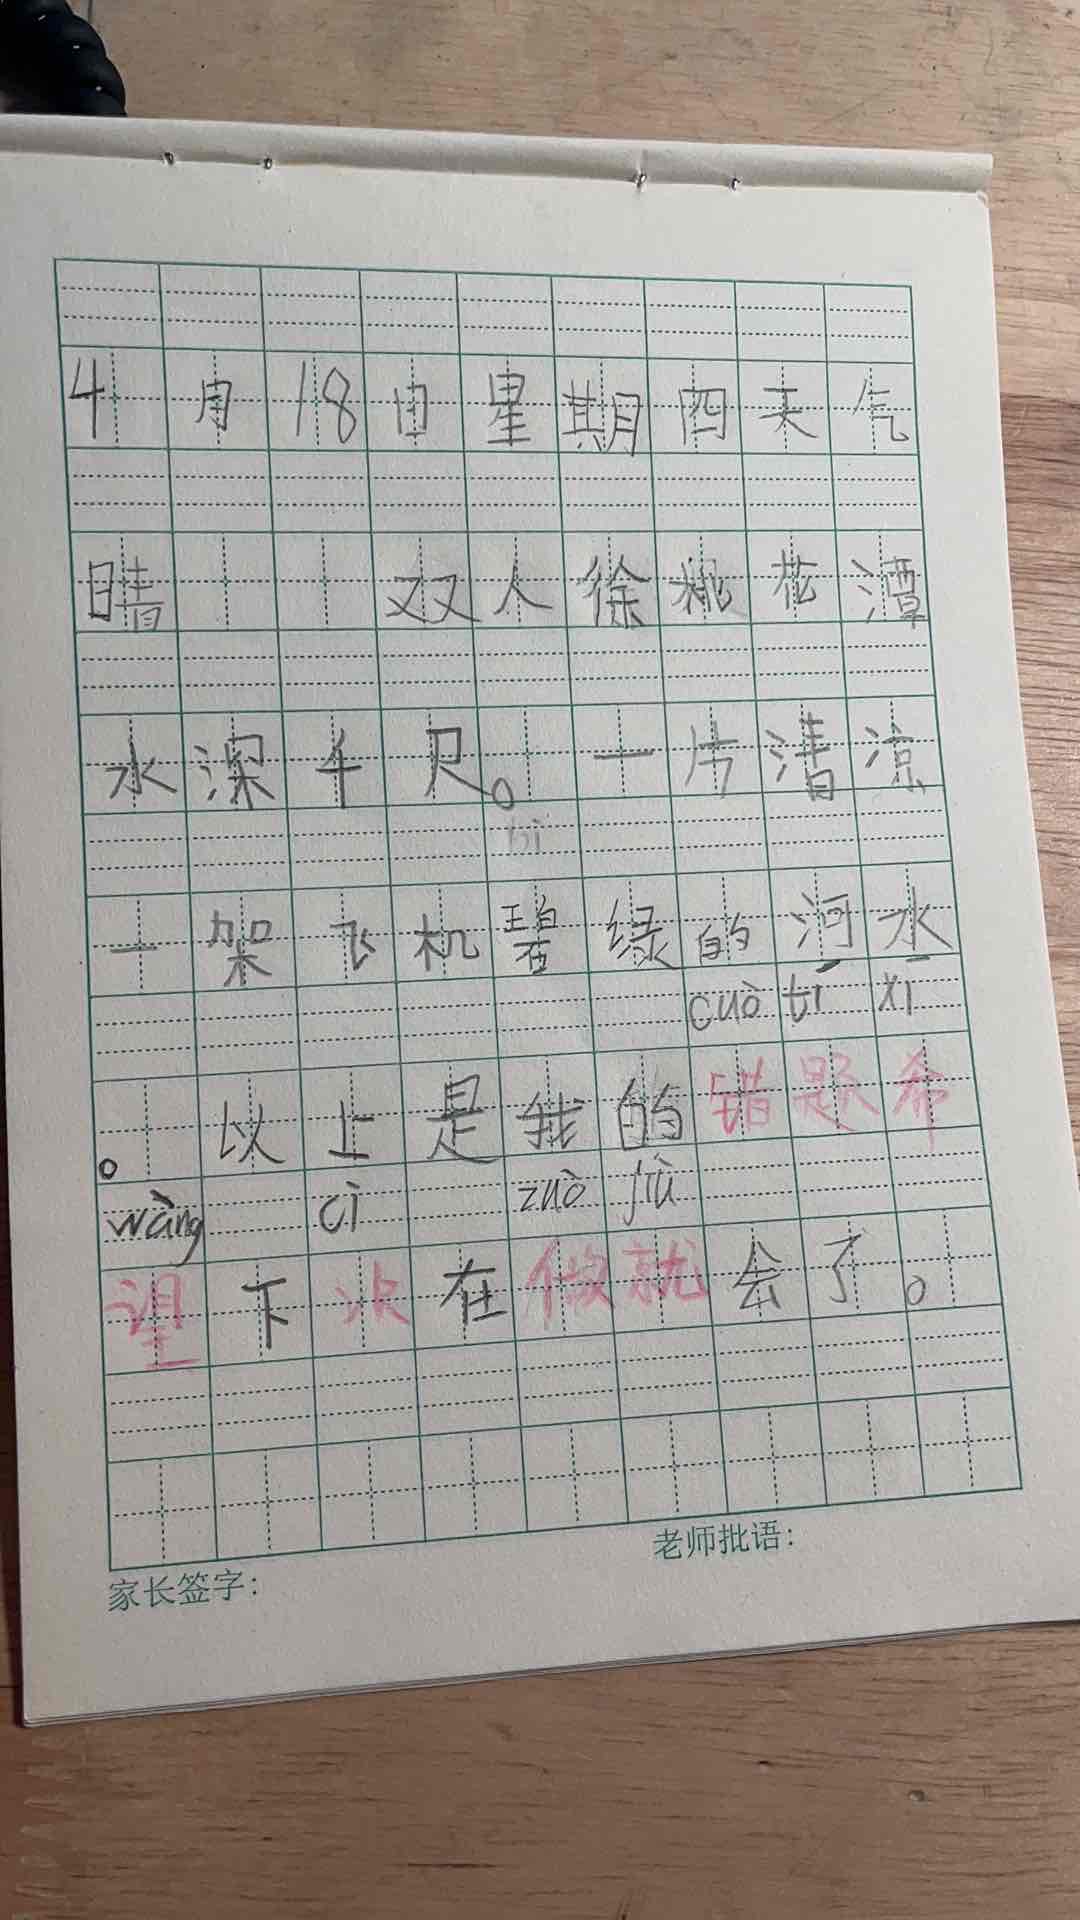 4月18日星期四天气
晴 双人徐桃花潭
水深千尺。一片清凉
bì
一架飞机碧绿的河水
cuò tí xī
。以上是我的错题希
wàng cì zuò jiù
望下次在做就会了。
老师批语：
家长签字：